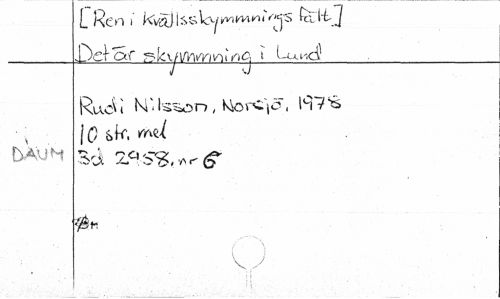 [Ren i kvällsskymmnings fält.]
Det är skymmning i Lund
Rudi Nilsson, Norsjö, 1978
10 str. mel
DAUM Bd 2958, nr 6